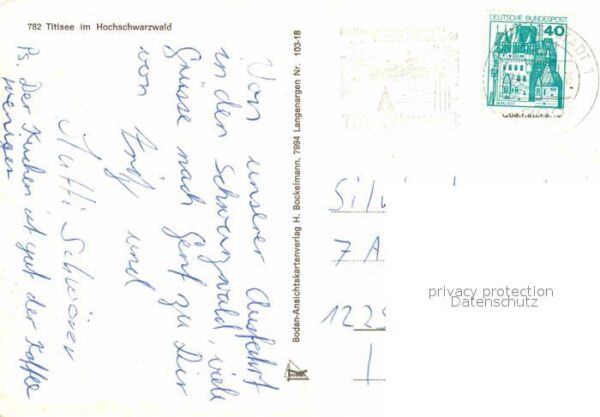 782 Titisee im Hochschwarzwald
Von unserer Ausfahrt
in den Schwarzwald, viele
Grüsse nach Genf zu Dir
von
und
Mutti
Ps. Der Kuchen ist gut der Kaffee
weniger
Bodan-Ansichtskartenverlag H. Bockelmann, 7994 Langenargen Nr. 103-18
DEUTSCHE BUNDESPOST
40
7 A
privacy protection
Datenschutz